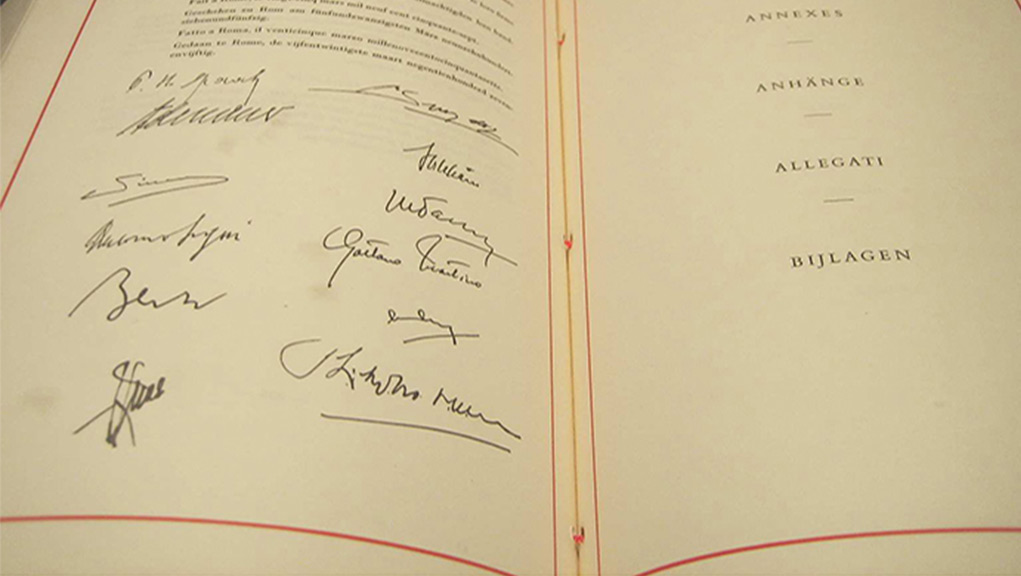 Fait à Rome, le vingt-cinq mars mil neuf cent cinquante-sept.
Geschehen zu Rom am fünfundzwanzigsten März neunzehnhundert-
siebenundfünfzig.
Fatto a Roma, il venticinque marzo millenovecentocinquantasette.
Gedaan te Rome, de vijfentwintigste maart negentienhonderd zeven-
envijftig.
P. H. Spaak
Adenauer
Antonio Segni
Bech
Hallstein
Gaetano Martino
J. Linthorst Homan
ANNEXES
ANHÄNGE
ALLEGATI
BIJLAGEN